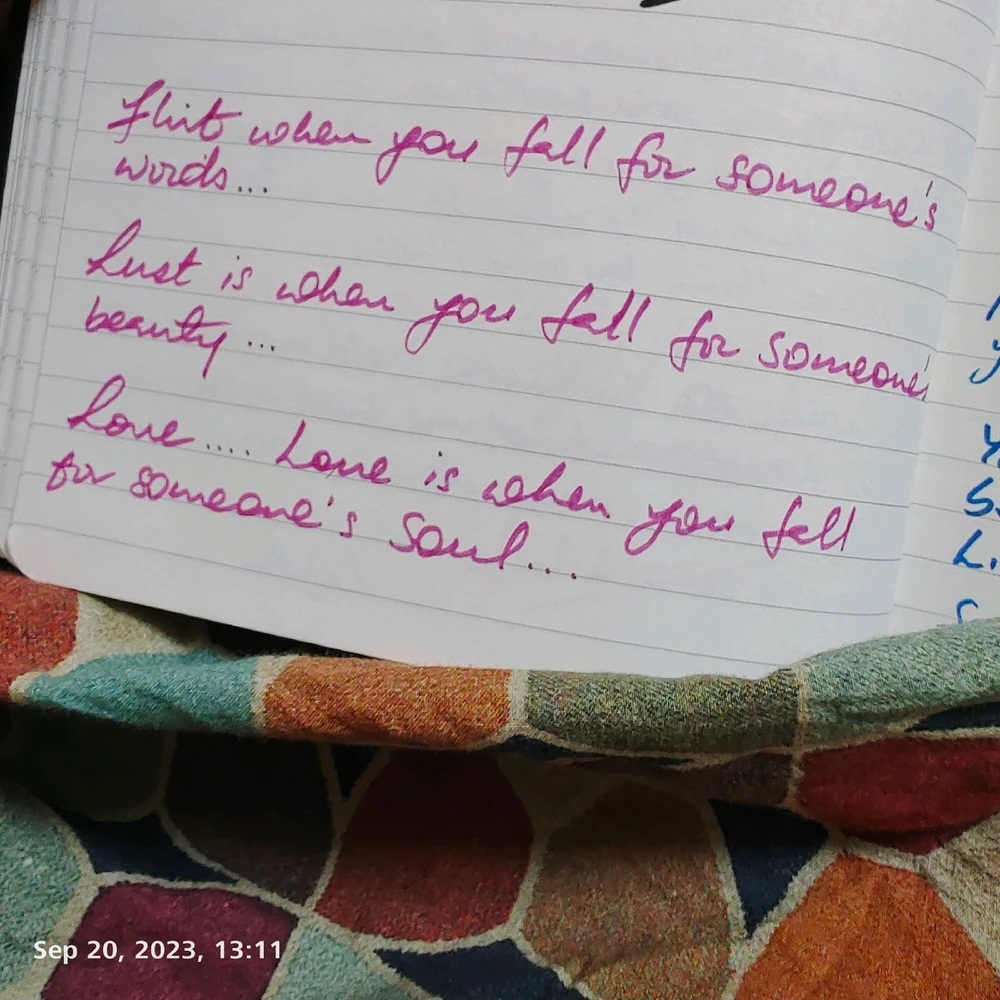 Flirt when you fall for someone's
words...
Lust is when you fall for someone's
beauty...
Love.... Love is when you fall
for someone's soul...
Y
S.
L.
Sep 20, 2023, 13:11